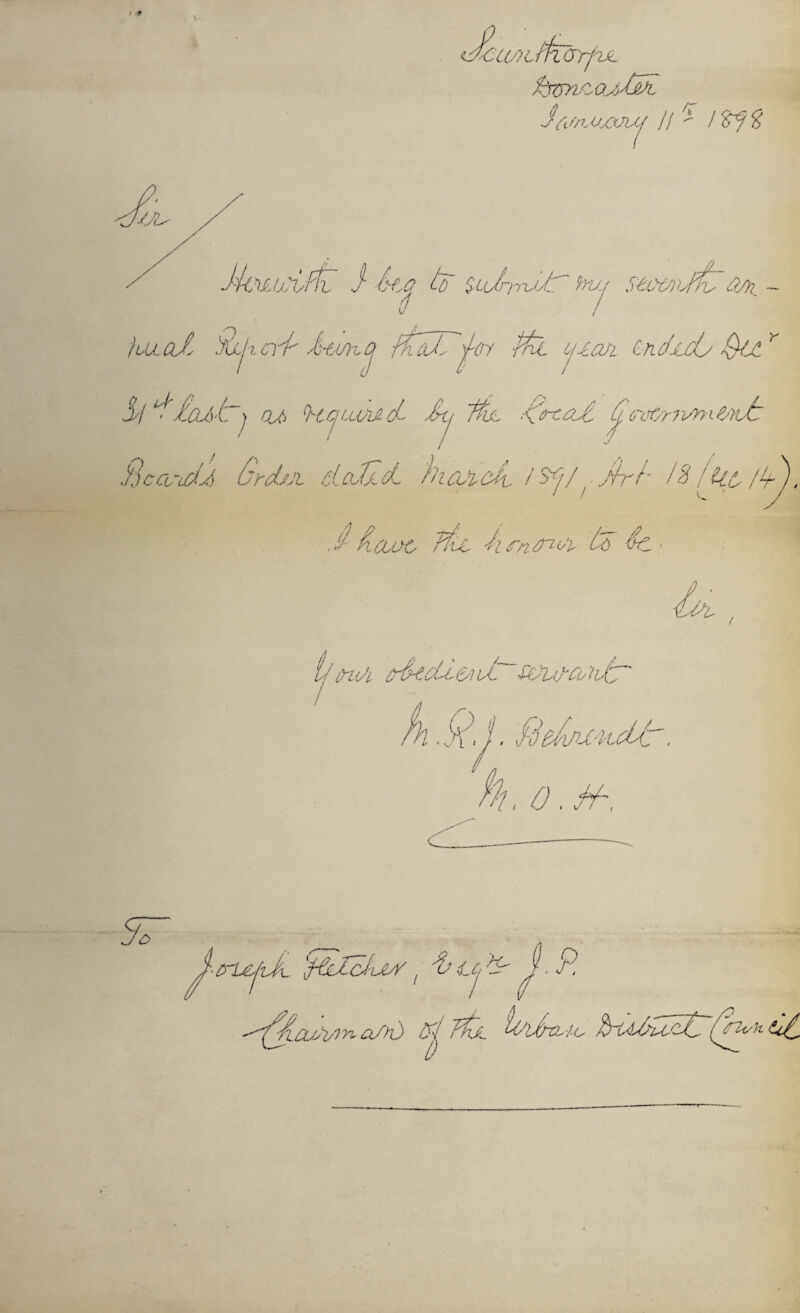 Scunthorpe
Doncaster
January 11th 1898
Sir
Herewith I beg to submit my seventh an-
nual Report being that for the year ended Decr
31st last, as required by the Local Government
Boards Order dated March 1891, Art 18 (sec 14).
I have the honour to be
Sir,
Your obedient servant
M.O.H.
To
Joseph Fletcher, Esqre J.P.
Chairman of the Urban District Council